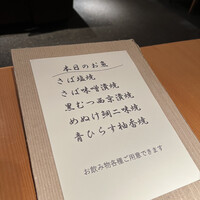 本日のお魚
さば塩焼
さば味噌漬焼
黒むつ西京漬焼
めぬけ鯛二味焼
青ひらす柚香焼
お飲み物各種ご用意できます